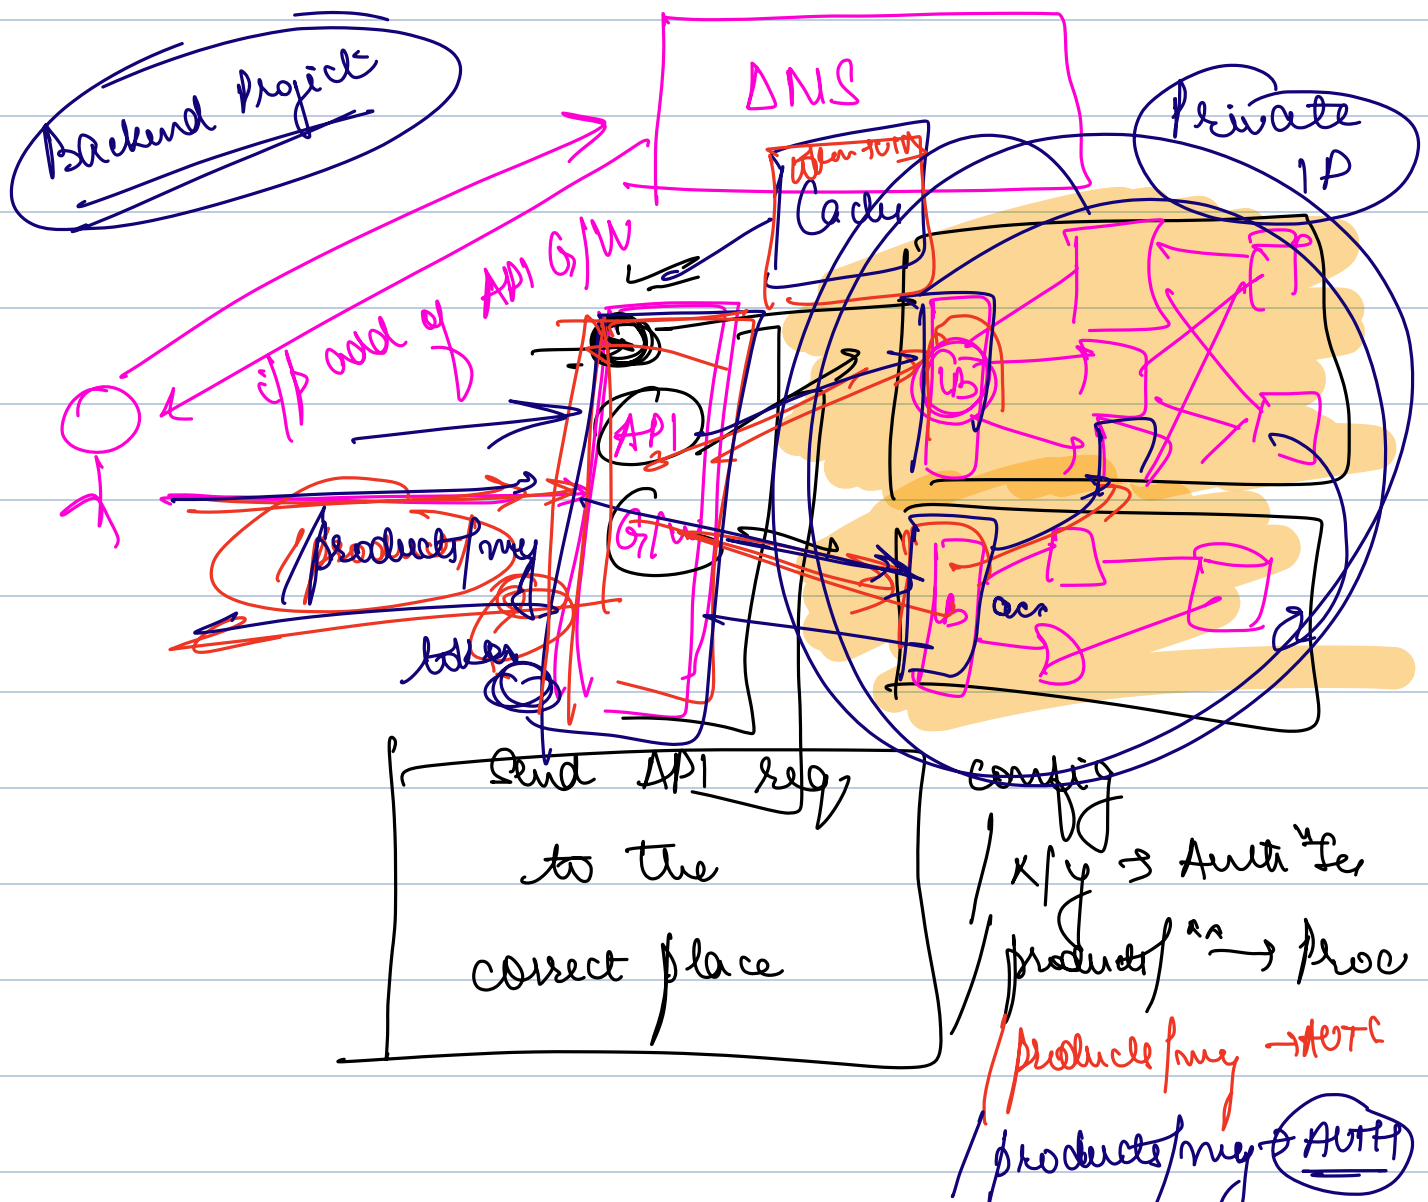 Backend Project
DNS
Private
IP
Cache
i/p add of API G/W
API
G/W
LB
/products/my
token
LB
Send API req
to the
correct place
config
/x/y → Auth
/products/ ^^ → Proc
/products/my →
/products/my → AUTH